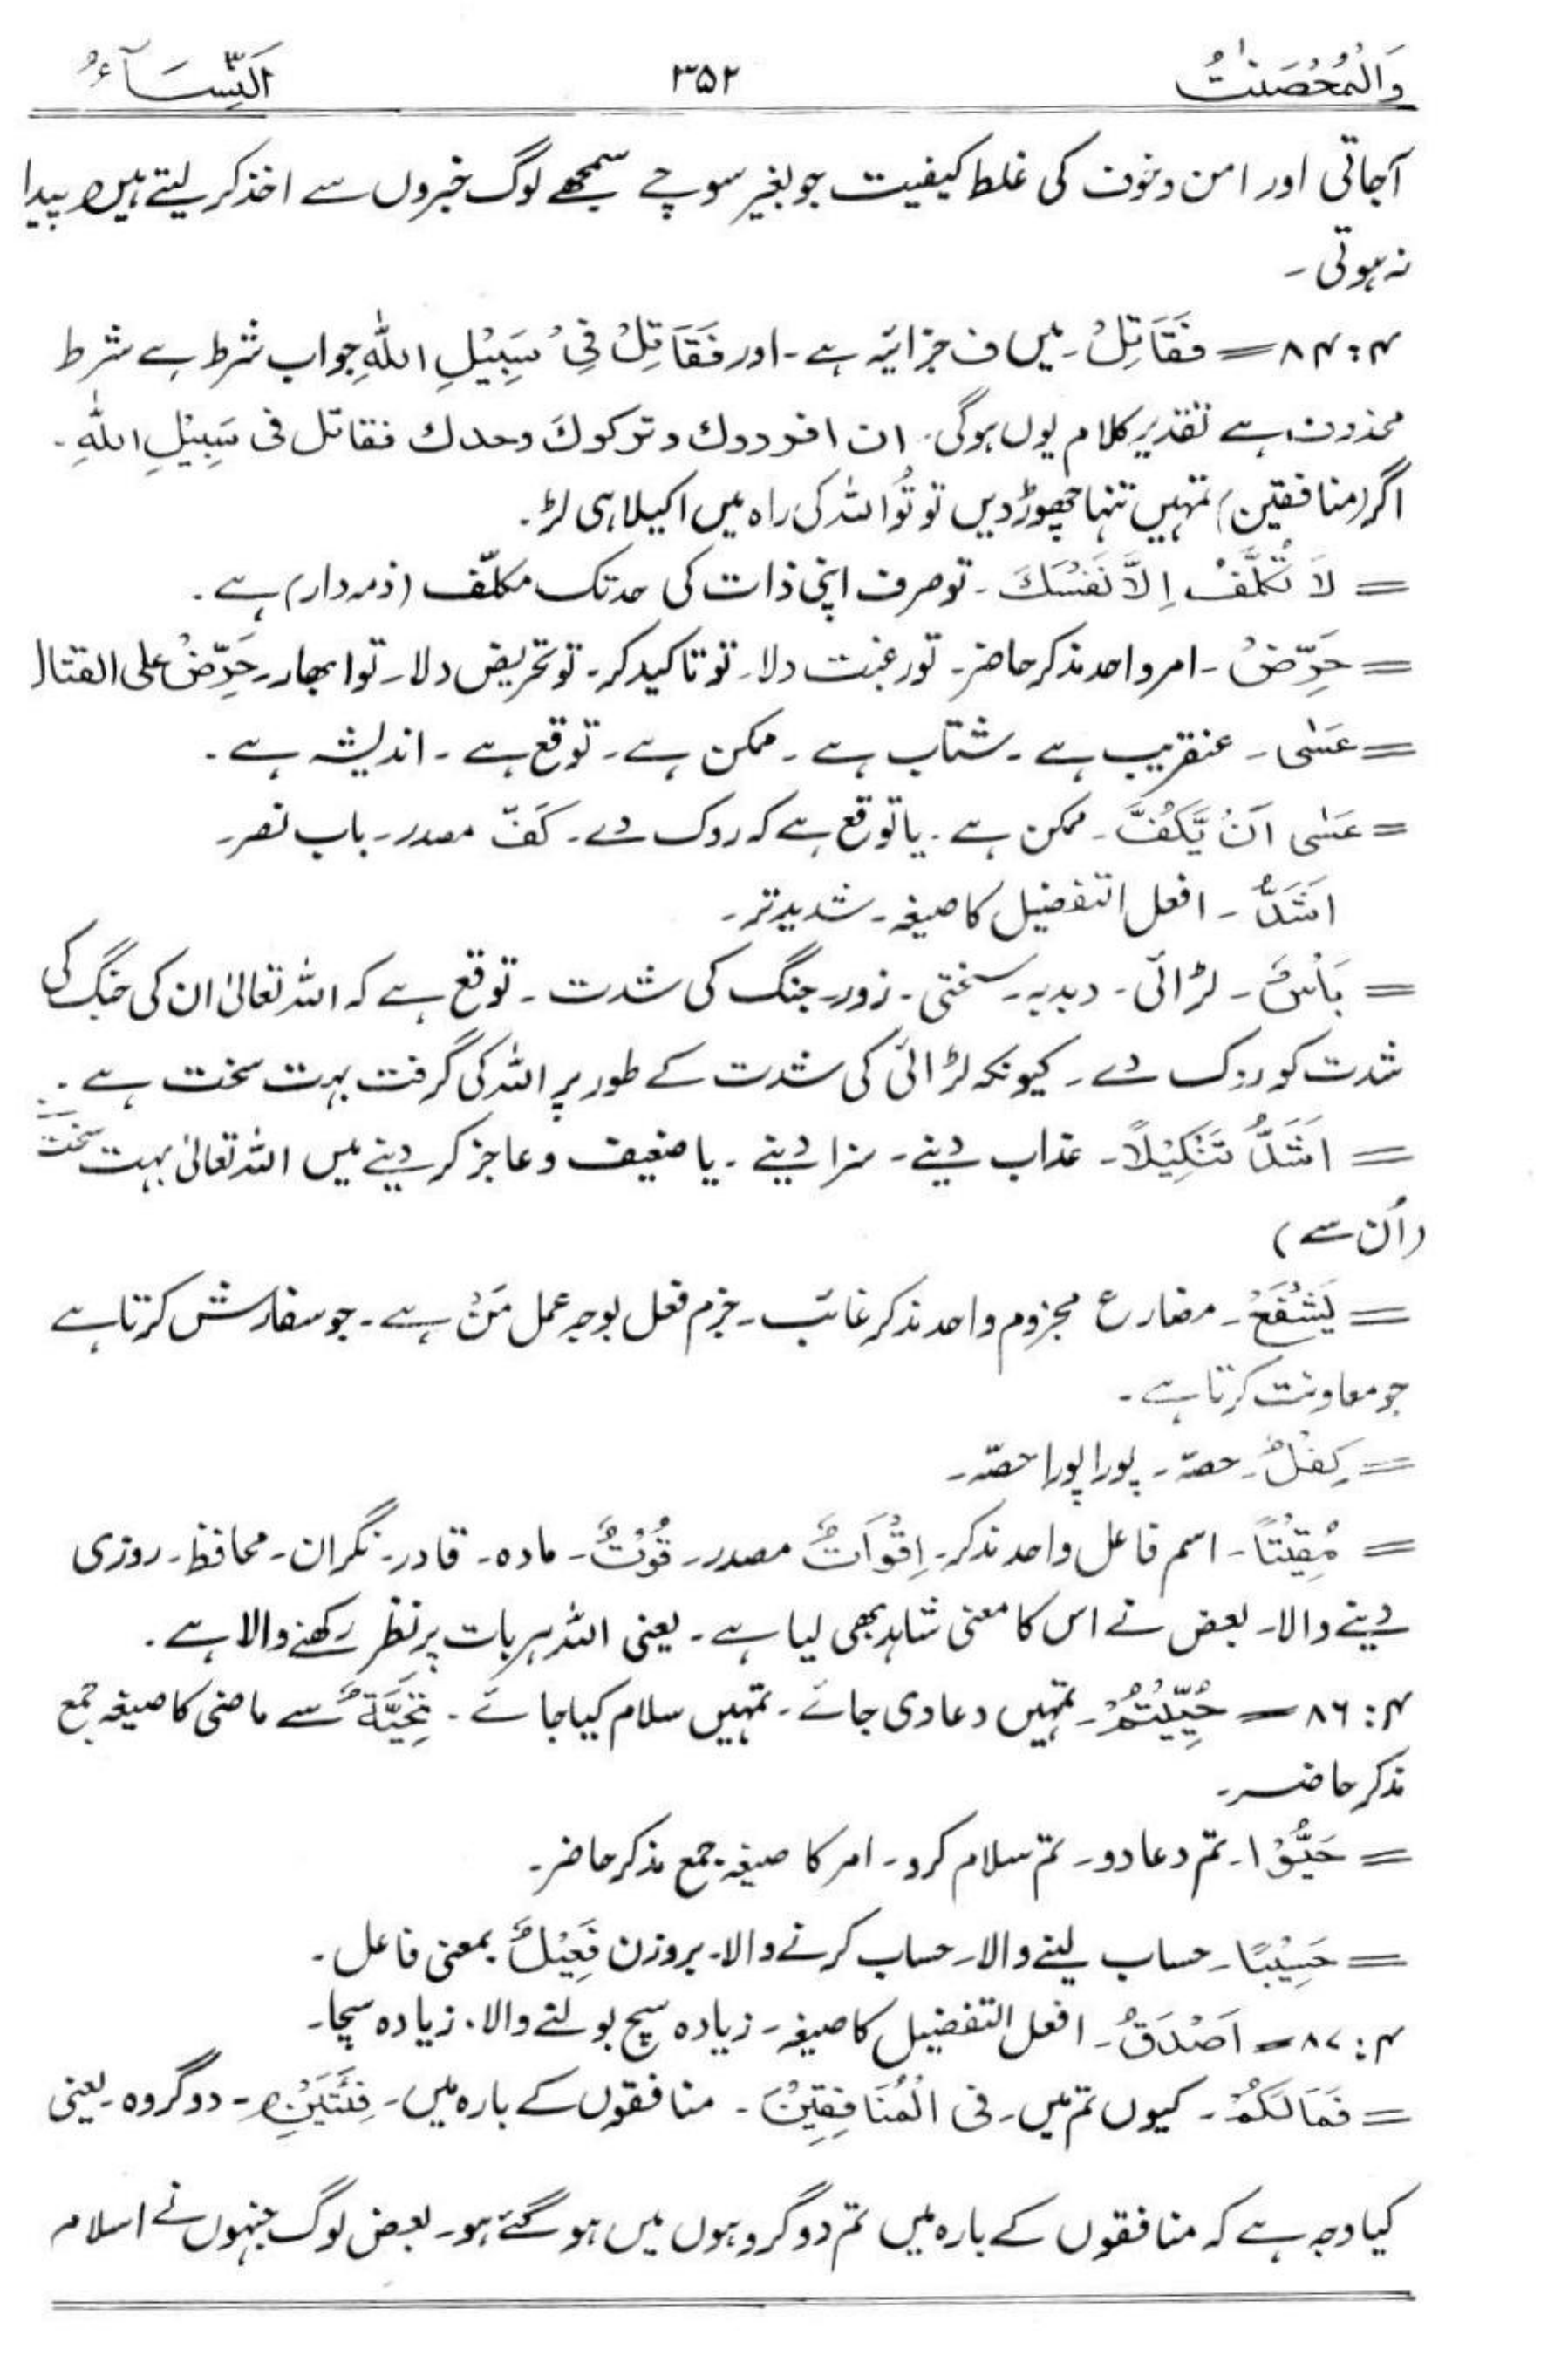 وَالْمُحْصَنٰتُ ۳۵۲ اَلنِّسَآءُ
آجاتی اور امن و خوف کی غلط کیفیت جو بغیر سوچے سمجھے لوگ خبروں سے اخذ کر لیتے ہیں پیدا
نہ ہوتی ۔
۴ : ۸۴ = فَقَاتِلْ ۔ میں ف جزائیہ ہے ۔ اور فَقَاتِلْ فِیْ سَبِیْلِ اللّٰہِ جواب شرط ہے شرط
محذوف ہے تقدیر کلام یوں ہوگی ۔ ان افردوك وتركوكَ وحدك فقاتل فی سَبِیْلِ اللّٰہِ ۔
اگر (منافقین) تمہیں تنہا چھوڑ دیں تو تُو اللہ کی راہ میں اکیلا ہی لڑ ۔
= لَا تُكَلَّفُ اِلَّا نَفْسَكَ ۔ تو صرف اپنی ذات کی حد تک مکلّف (ذمہ دار) ہے ۔
= حَرِّضْ ۔ امر واحد مذکر حاضر ۔ تو رغبت دلا ۔ تو تاکید کر ۔ تو تحریض دلا ۔ تو ابھار ۔ حَرِّضْ علی القتال
= عَسٰی ۔ عنقریب ہے ۔ شتاب ہے ۔ ممکن ہے ۔ توقع ہے ۔ اندیشہ ہے ۔
= عَسٰی اَنْ یَّکُفَّ ۔ ممکن ہے ۔ یا توقع ہے کہ روک دے ۔ کَفّ مصدر ۔ باب نصر ۔
اَشَدُّ ۔ افعل التفضیل کا صیغہ ۔ شدید تر ۔
= بَاْسٌ ۔ لڑائی ۔ دبدبہ ۔ سختی ۔ زور ۔ جنگ کی شدت ۔ توقع ہے کہ اللہ تعالیٰ ان کی جنگ کی
شدت کو روک دے ۔ کیونکہ لڑائی کی شدت کے طور پر اللہ کی گرفت بہت سخت ہے ۔
= اَشَدُّ تَنْكِیْلًا ۔ عذاب دینے ۔ سزا دینے ۔ یا ضعیف و عاجز کر دینے میں اللہ تعالیٰ بہت سخت
(اُن سے)
= یَشْفَعْ ۔ مضارع مجزوم واحد مذکر غائب ۔ جزم فعل بوجہ عمل مَنْ ہے ۔ جو سفارش کرتا ہے
جو معاونت کرتا ہے ۔
= کِفْلٌ ۔ حصہ ۔ پورا پورا حصّہ ۔
= مُقِیْتًا ۔ اسم فاعل واحد مذکر ۔ اِقْوَاتٌ مصدر ۔ قُوْتٌ ۔ مادہ ۔ قادر ۔ نگران ۔ محافظ ۔ روزی
دینے والا ۔ بعض نے اس کا معنی شاہد بھی لیا ہے ۔ یعنی اللہ ہر بات پر نظر رکھنے والا ہے ۔
۴ : ۸۶ = حُیِّیْتُمْ ۔ تمہیں دعا دی جائے ۔ تمہیں سلام کیا جائے ۔ تَحِیَّةٌ سے ماضی کا صیغہ جمع
مذکر حاضر ۔
= حَیُّوْا ۔ تم دعا دو ۔ تم سلام کرو ۔ امر کا صیغہ جمع مذکر حاضر ۔
= حَسِیْبًا ۔ حساب لینے والا ۔ حساب کرنے والا ۔ بروزن فَعِیْلٌ بمعنی فاعل ۔
۴ : ۸۷ = اَصْدَقُ ۔ افعل التفضیل کا صیغہ ۔ زیادہ سچ بولنے والا ۔ زیادہ سچا ۔
= فَمَا لَكُمْ ۔ کیوں تم میں ۔ فی الْمُنَافِقِیْنَ ۔ منافقوں کے بارہ میں ۔ فِئَتَیْنِ ۔ دو گروہ ۔ یعنی
کیا وجہ ہے کہ منافقوں کے بارہ میں تم دو گروہوں میں ہو گئے ہو ۔ بعض لوگ جنہوں نے اسلام